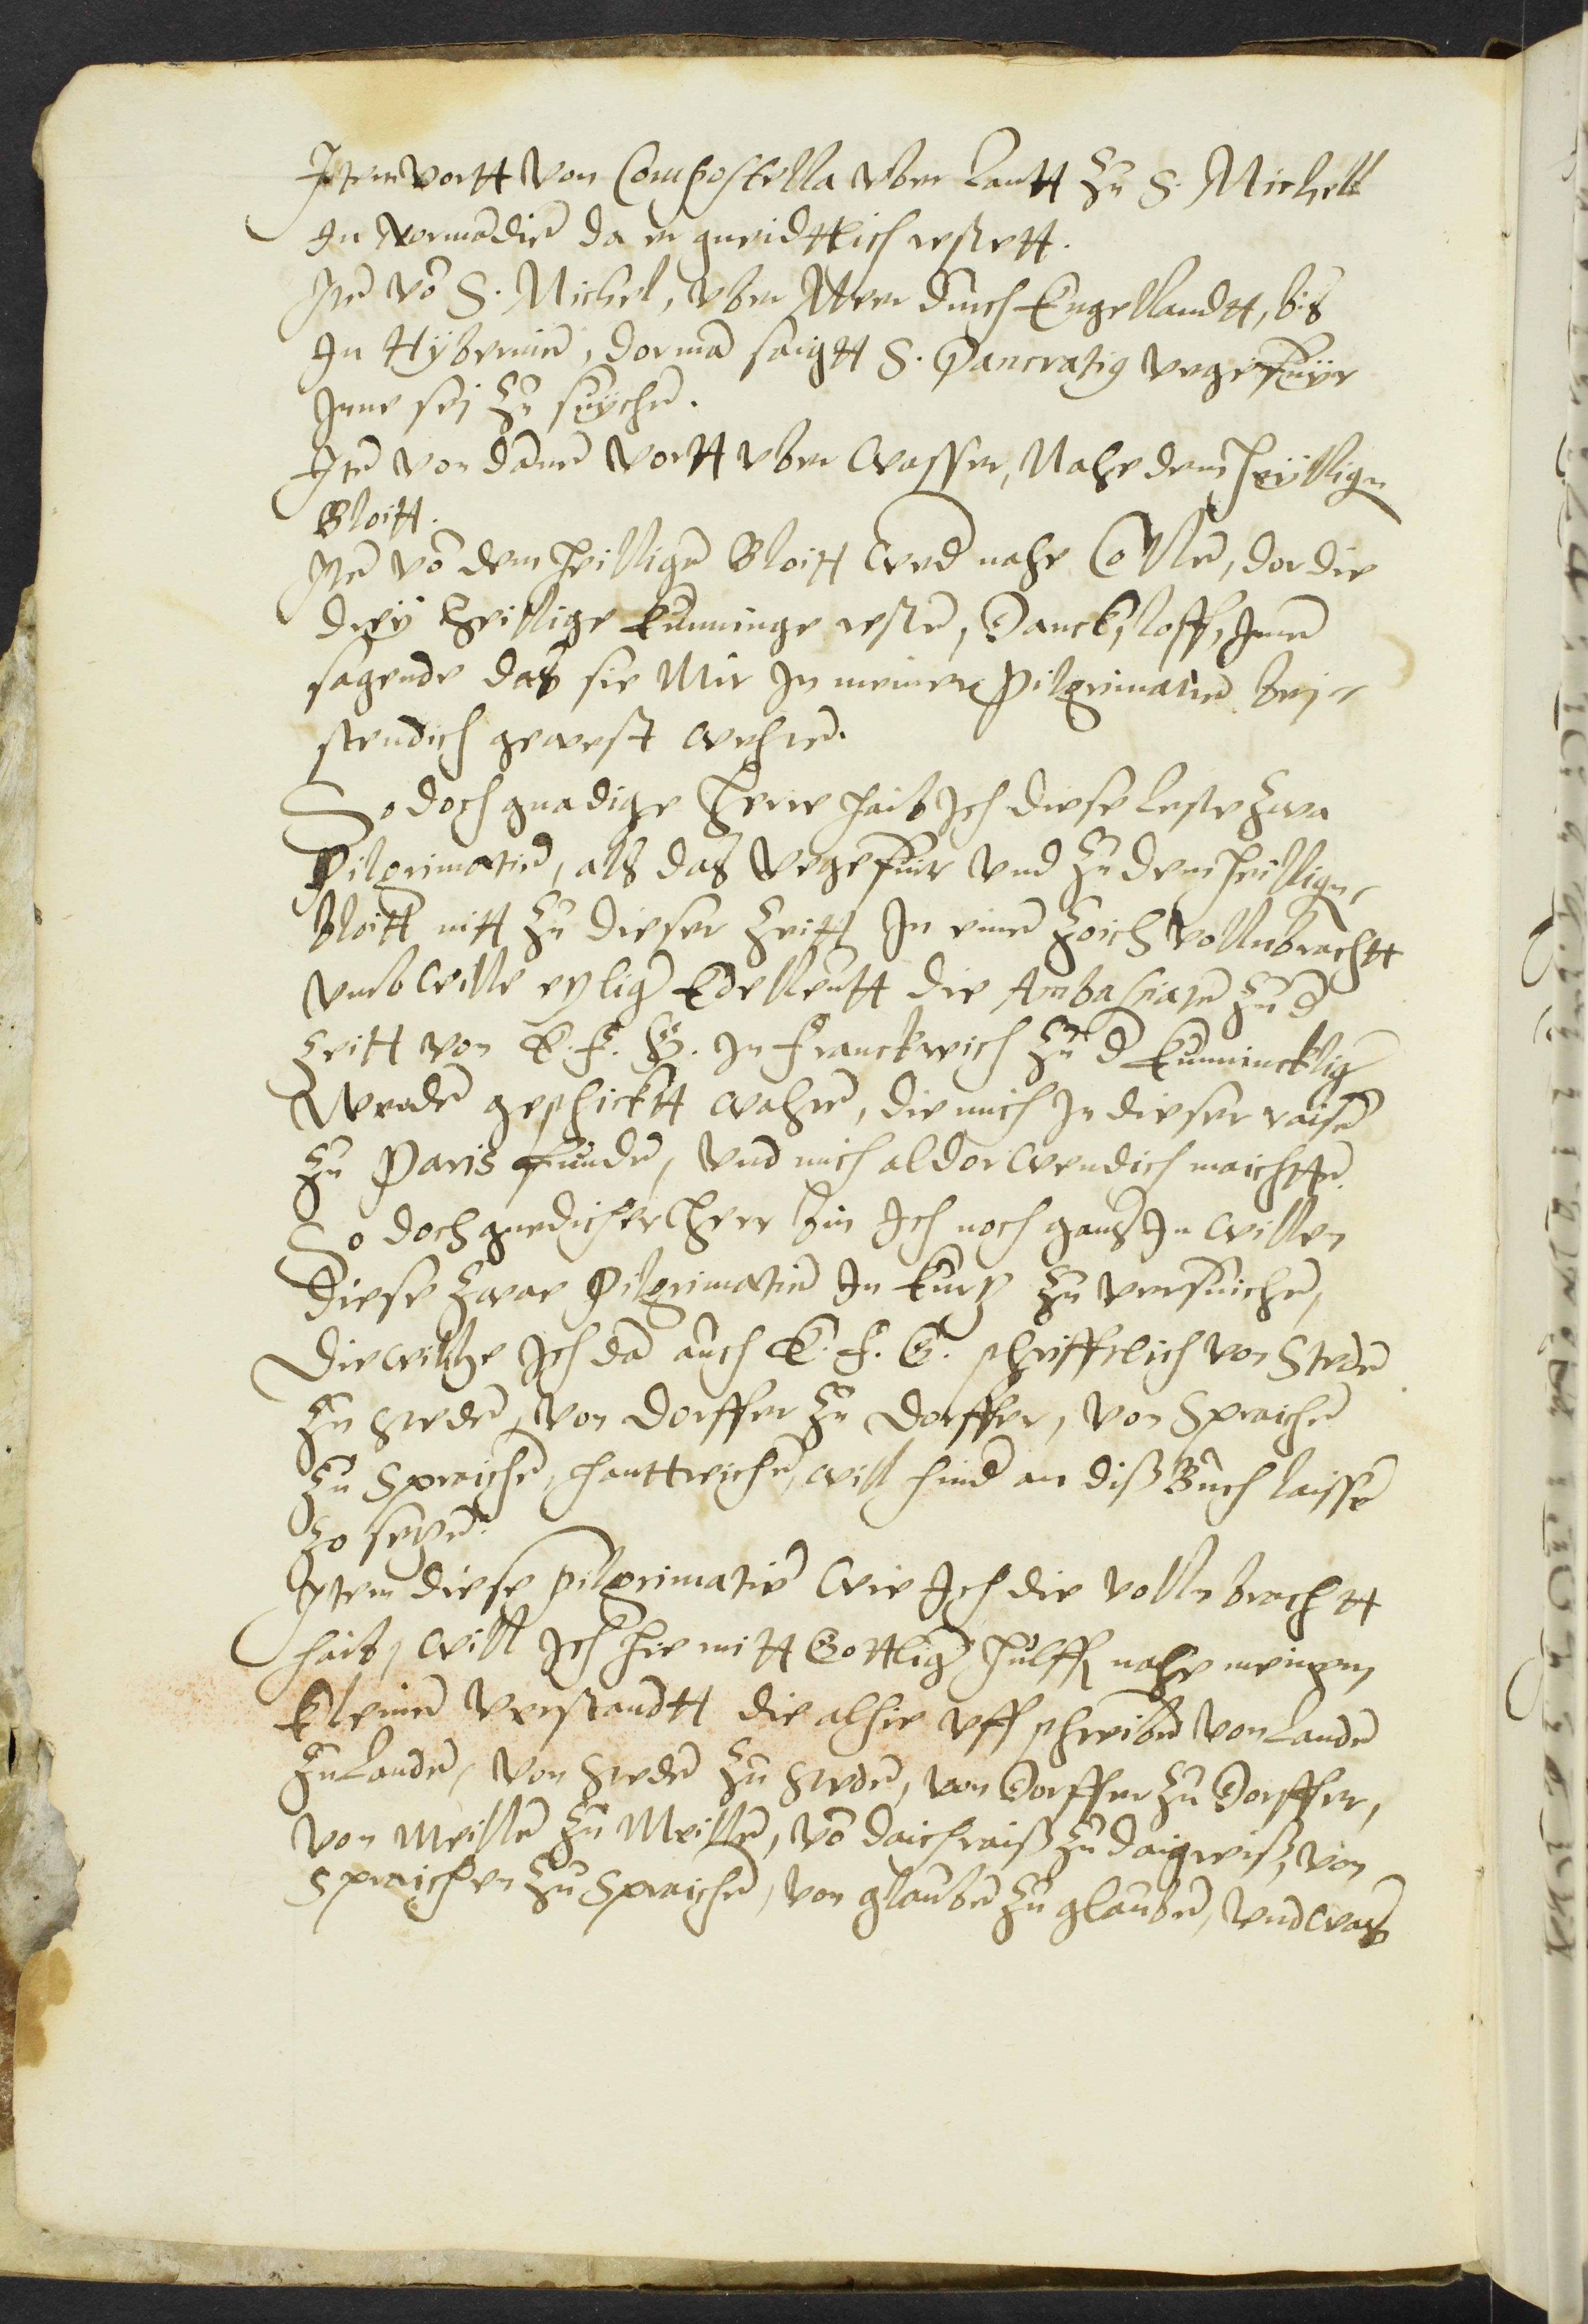 Item vortt von Compostella vber Lantt zu S. Michell
In Normãdiẽ da er gneidttlich restett.
Itẽ võ S. Michel, vber Meer durch Engellandtt, bis
In Hÿberniẽ, dormã saigtt S. Pancratig vegefuÿr
Inne sej zu suÿchẽ.
Itẽ von dãnnẽ vortt vber Wasser, Nahe dem heÿlligen
Bloitt.
Itẽ võ dem heilligẽ Bloitt wed nahe Collẽ, dor die
dreÿ heillige kunninge restẽ, Danck, loff, Innẽ
sagende das sie Mir In meiner Pilgrimatiẽ bej-
stendich gewest wehrẽ.
So doch gnadige Herre haib Ich diese leste zwa
Pilgrimatiẽ, als das vegefuir vnd zu dem heilligen
bloitt nitt zu dieser zeitt In einẽ zoich vollnbrachtt
vmb wille etzlig Edelleutt die Ambasiatẽ zu d
zeitt von E. F. G. In Franckreich zu d kunnincklig
Wrade geschicktt wahrẽ, die mich In dieser raisẽ
zu Paris fundẽ, vnd mich aldor wendich maichttẽ.
So doch gnedicher Herr bin Ich noch gans In willen
diese zwae Pilgrimatiẽ In kurtz zu versuichẽ,
Die wilche Ich dã auch E. F. G. schrifftlich von Stedẽ
zu Stedẽ, von Dorffer zu Dorffer, von Spraichẽ
zu Spraichẽ, hanttreichẽ, will hind an diß Buch laissẽ
zo setzẽ.
Item diese pilgrimatiẽ wie Ich die vollnbrachtt
haib, will Ich hie mitt Gottlig hulff nahe meinem
kleinẽ verstandtt die alhie vff schreibẽ von Landẽ
zu Landẽ, von Stedẽ zu Stedẽ, von Dorffer zu Dorffer,
von Meillẽ zu Meillẽ, võ daichraiß zu daigreiß, von
Spraichen zu Spraichẽ, von glaubẽ zu glaubẽ, vnd was